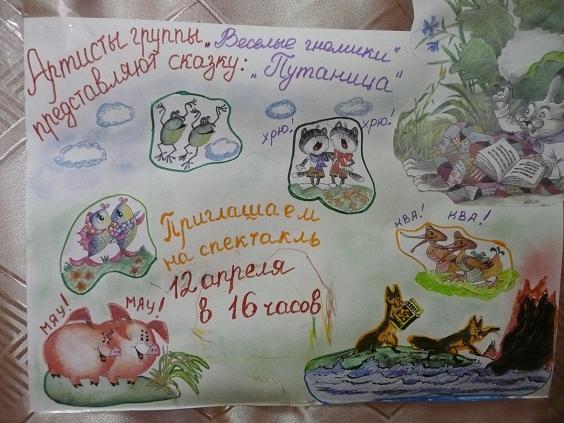 Артисты группы „Веселые гномики"
представляют сказку: „Путаница"
хрю! хрю!
ква! ква!
Приглашаем
на спектакль
12 апреля
в 16 часов
мяу! мяу!